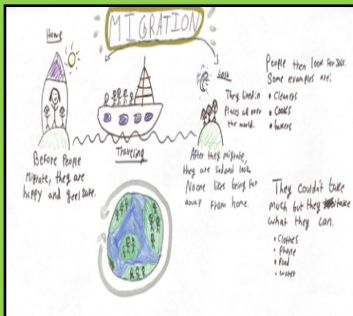 MIGRATION
Home
Before People
Migrate, they are
happy and feel safe.
Traveling
Lost
They lived in
Places all over
the world.
After they migrate,
they are sad and lost.
No one likes being far
away from home.
People then look for jobs.
Some examples are:
• Cleaners
• Cooks
• bakers
They couldn't take
much but they take
what they can.
• Clothes
• Phone
• Food
• water